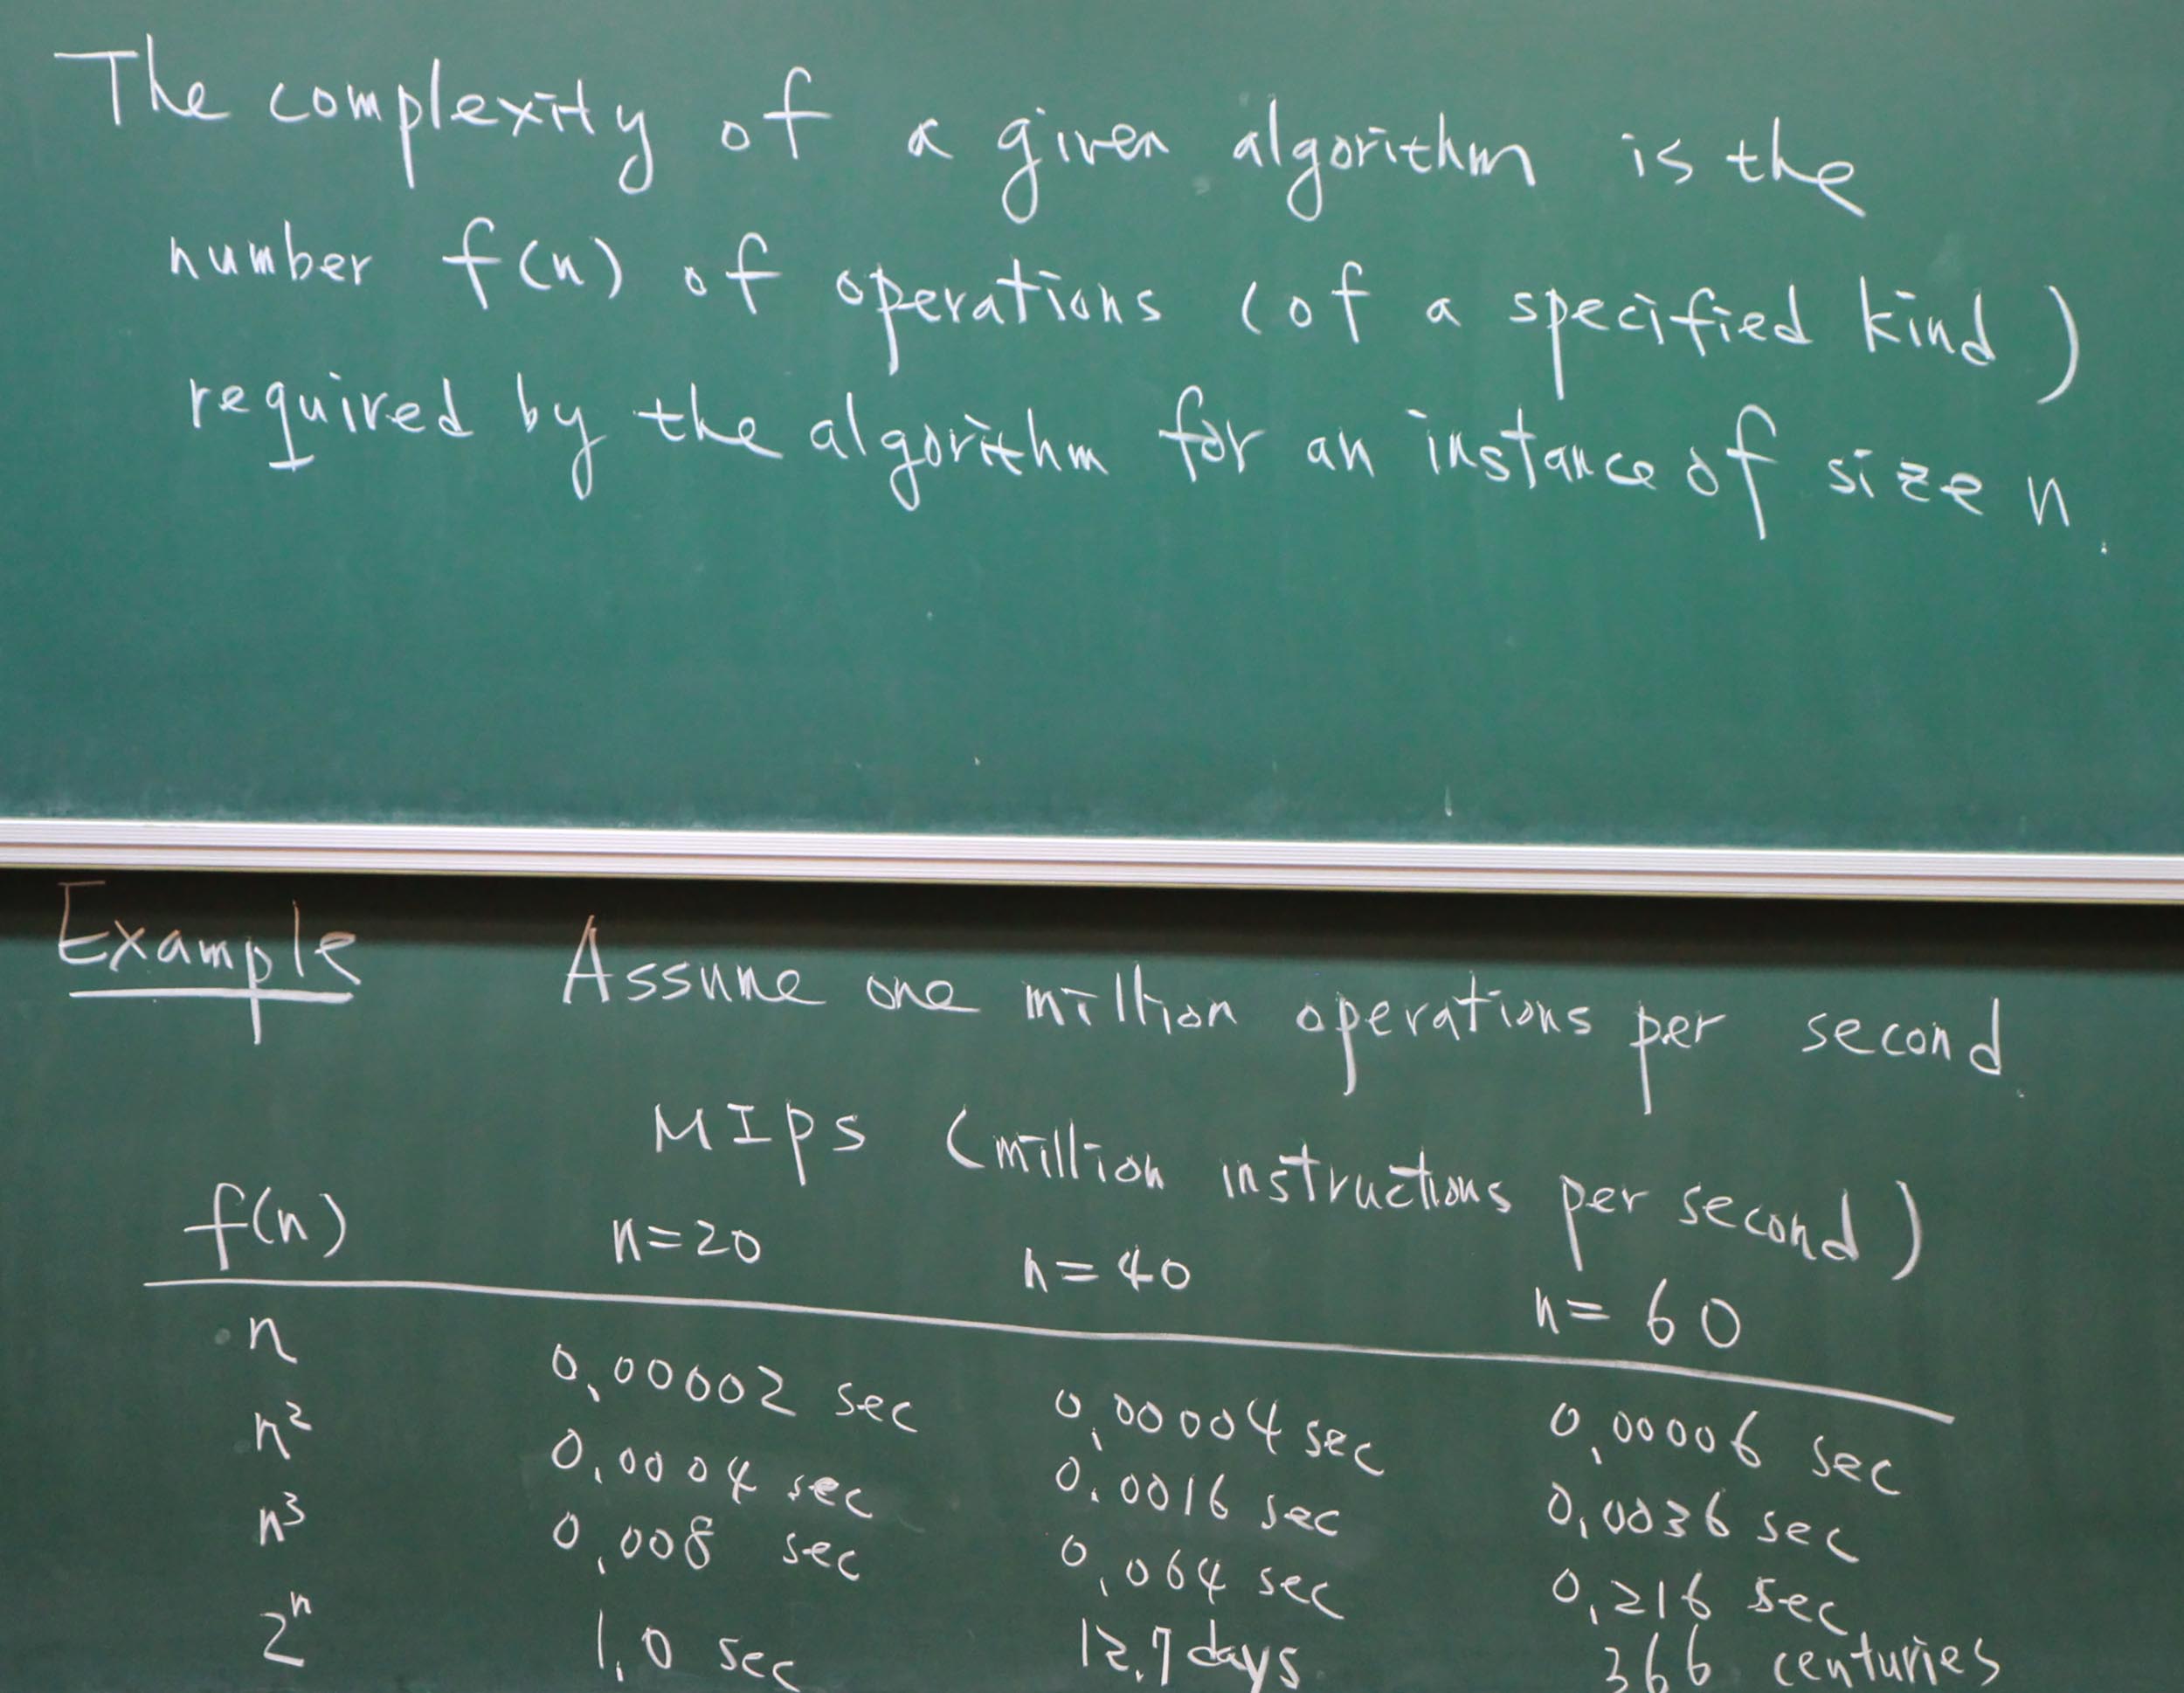 The complexity of a given algorithm is the
number f(n) of operations (of a specified kind)
required by the algorithm for an instance of size n.
Example Assume one million operations per second.
MIPS (million instructions per second)
f(n) n=20 n=40 n=60
n 0.00002 sec 0.00004 sec 0.00006 sec
n² 0.0004 sec 0.0016 sec 0.0036 sec
n³ 0.008 sec 0.064 sec 0.216 sec
2ⁿ 1.0 sec 12.7 days 366 centuries